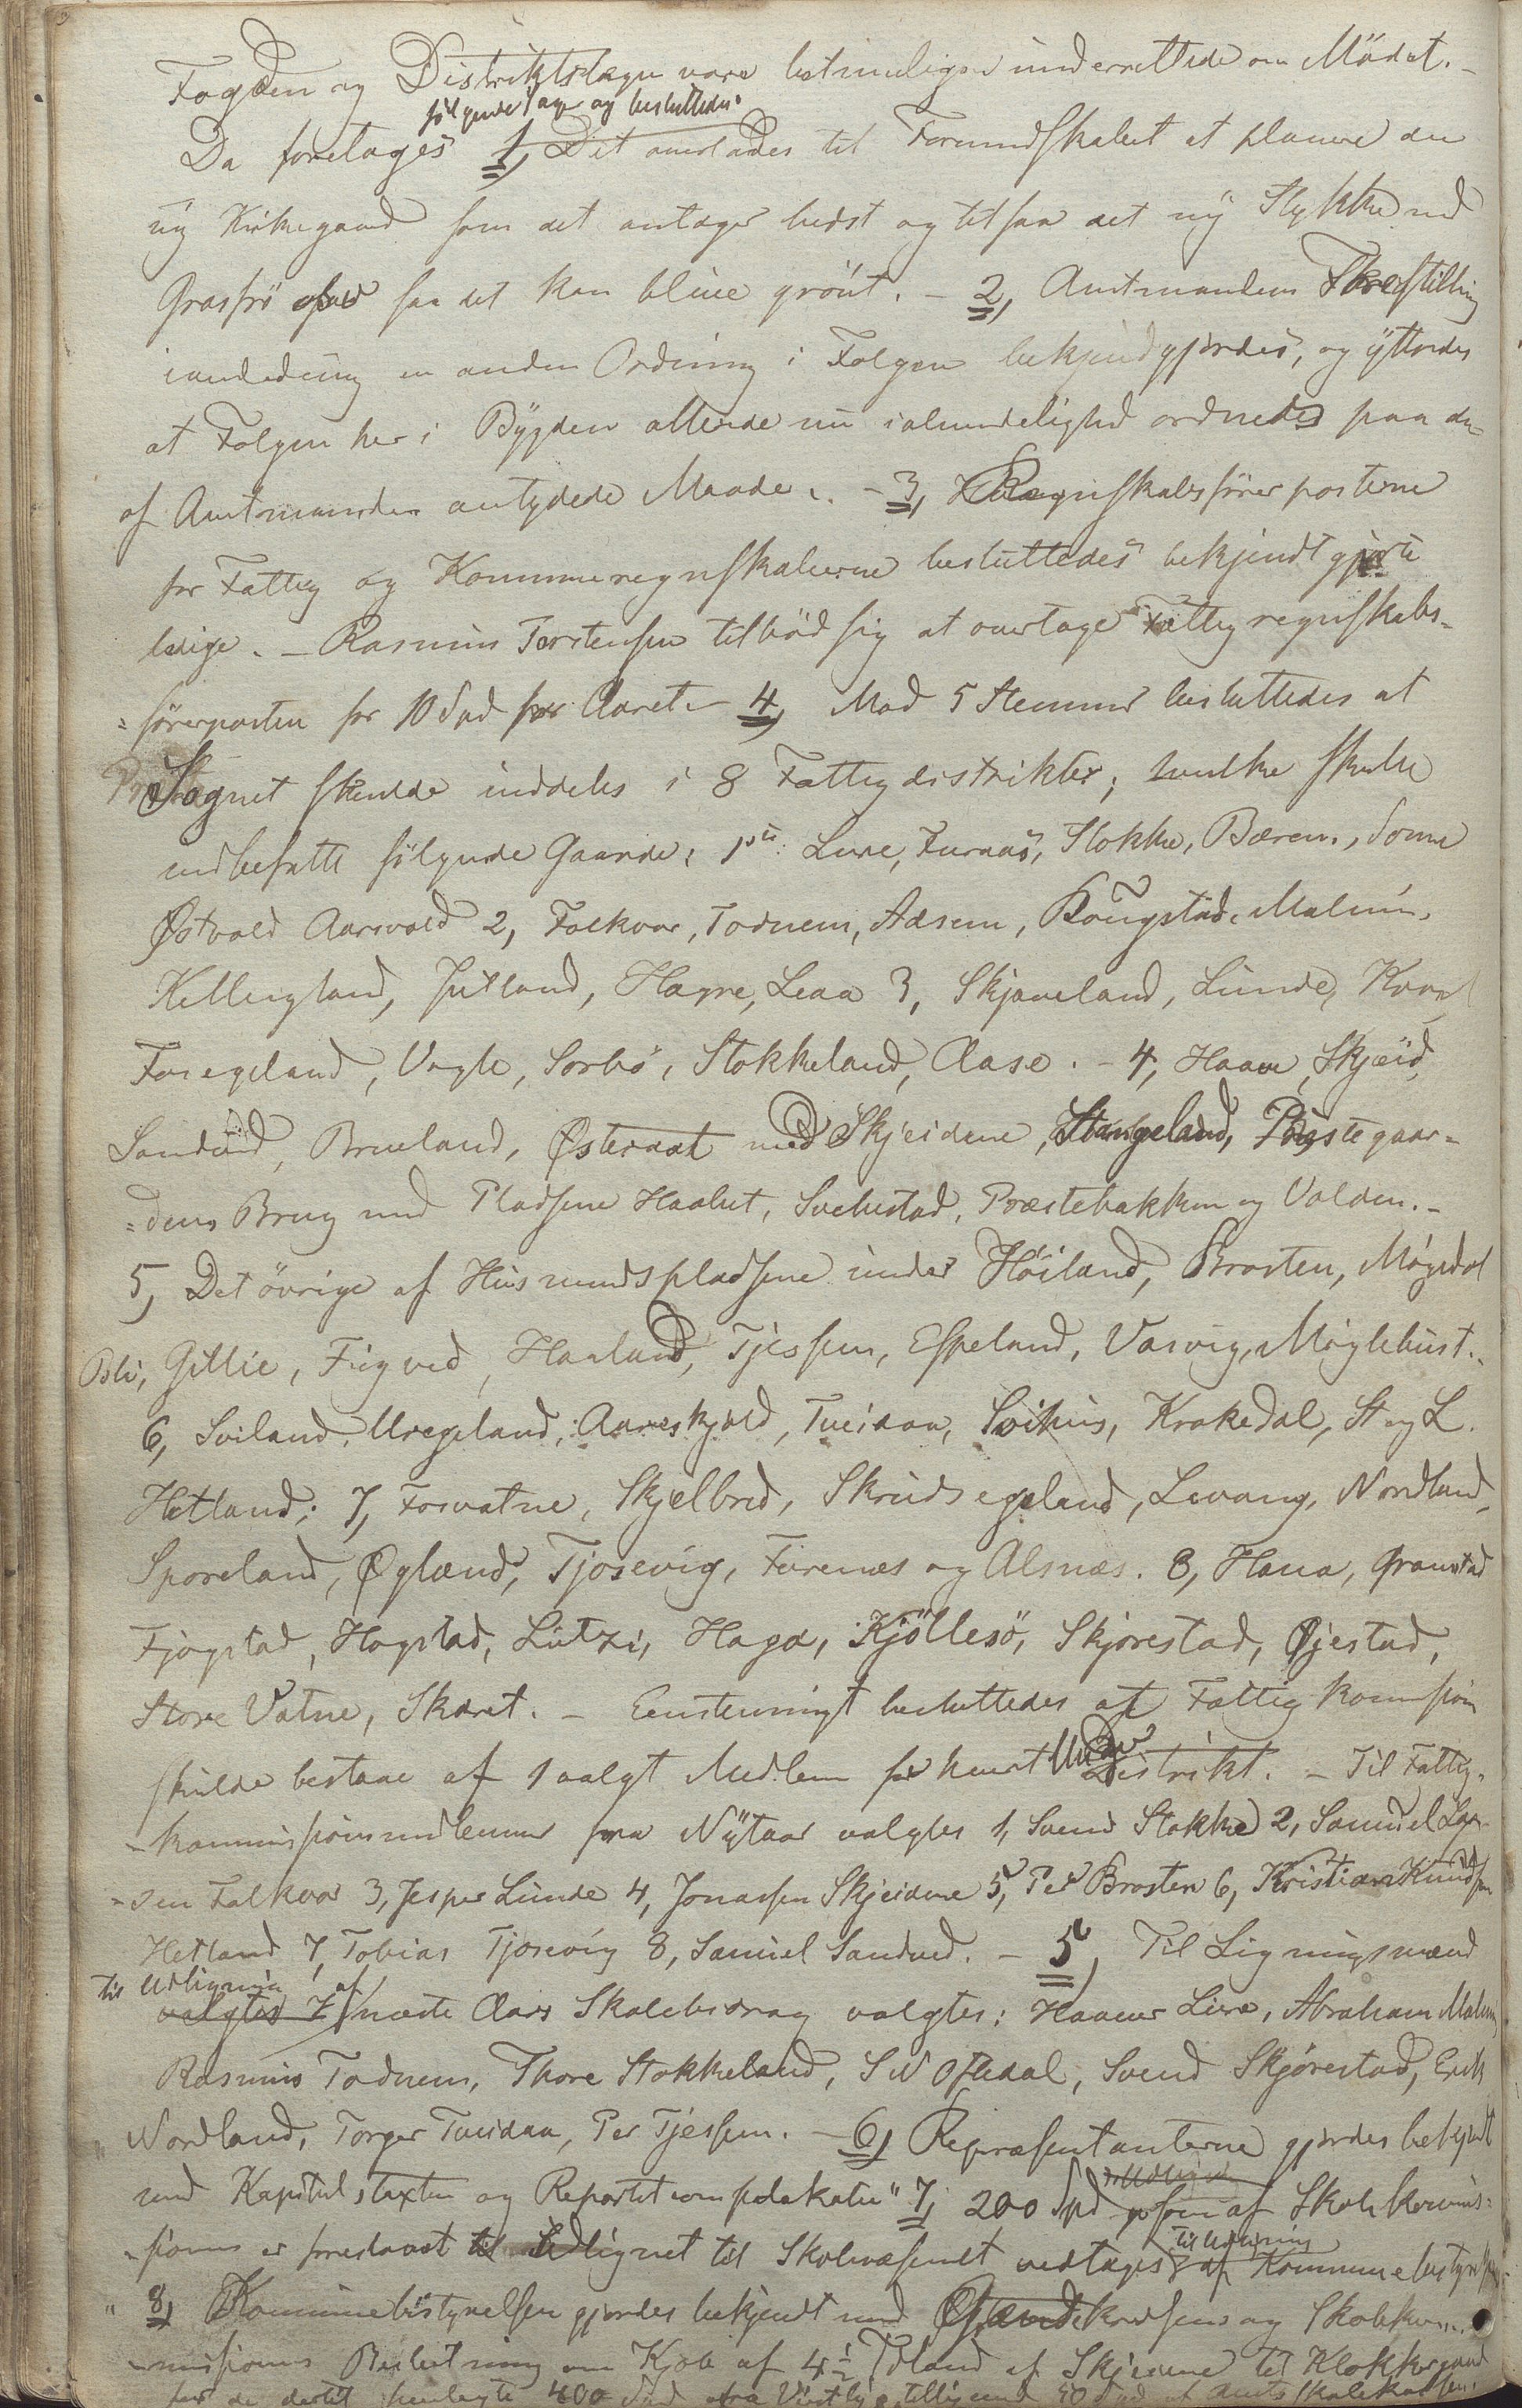 Fogden og Distriktslægen vare betimeligen underrettede om Mødet. -
følgende Sager og besluttedes
Da foretages 1, Det overlades til Formandskabet at planere den
ny Kirkegaard som det antager bedst og tilsaa det ny Stykke med
Græsfrø saa det kan blive grönt. - 2, Amtmandens Forestilling
en anden Ordning i Folgen bekjendtgjordes, og yttredes
at Folgen her i Bygden allerede nu i almindelighed ordnedes paa den
af Amtmanden antydede Maade. - 3, Regnskabsförerposterne
for Fattig og Kommuneregnskaberne besluttedes bekjendtgjorte
ledige. - Rasmus Torstensen tilböd sig at overtage Fattigregnskabs-
=förerposten for 10 Spd for Aaret - 4, Mod 5 Stemmer besluttedes at
Sognet skulde inddeles i 8 Fattigdistrikter; hvilke skulde
indbefatte følgende Gaarde: 1ste: Lure, Furnæs, Stokke, Bærem, Somme
Østvold Aarsvold 2, Folkvor, Todnem, Adsem, Bougstad, Malmin,
Kellingland, Jutland, Hagne, Leaa 3, Skjæveland, Lunde, Kval
Foregeland, Vagle, Sorbö, Stokkeland, Aase. - 4, Haave, Skjæid,
Sandved, Brueland, Østeraat med Skjeidene, Stangeland, Præstegaar-
=dens Brug med Pladsene Haabet, Svebestad, Præstebakken og Valden. -
5, Det övrige af Husmandspladsene under Höiland, Brosten, Møgedal
Osli, Gillie, Figved, Hanland, Tjessem, Espeland, Vasvig, Møglebust.
6, Sviland, Uregeland, Aareskjold, Tveidaa, Svihus, Krokedal, St og L.
Hetland; 7, Fosvatne, Skjelbred, Skrudsegeland, Levang, Nordland,
Sporeland, Øglænd, Tjosevig, Furenes og Alsnæs. 8, Hana, Gramstad
Fjogstad, Hogstad, Lutzi, Haga, Kjöllesö, Skjørestad, Øjestad,
Store Vatne, Skaret. - Eenstemmigt besluttedes at Fattigkommission
skulde bestaae af 1 valgt Medlem for hvert Distrikt. - Til Fattig-
-kommissionsmedlemmer fra Nytaar valgtes 1, Svend Stokke 2, Samuel Lar-
-sen Folkvor 3, Jesper Lunde 4, Jonassen Skjeidene 5, Per Brosten 6, Kristian Knudsen
Hetland 7, Tobias Tjosevig 8, Samuel Sandved. - 5, Til Ligningsmænd
til Udligning af
valgtes 7 næste Aars Skolebidrag valgtes: Haaver Lure, Abraham Malmin
Rasmus Todnem, Thore Stokkeland, S N Oftedal, Svend Skjørestad, Erik
Nordland, Torger Tveidaa, Per Tjessem. - 6, Repræsentanterne gjordes bekjendt
med Kapitelstaxten og Repartitionsplakaten" 7, 200 Spd som af Skolekommis-
-sionen er foreslaaet Udlignet til Skolevæsenet vedtages til Udligning af Kommunebestyrelsen
" 8, Kommunebestyrelsen gjordes bekjendt med Kredsens og Skolekom-
-missionens Beslutning om Kjøb af 4½ Td Land af Skjeidene til Klokkergaard
for de dertil henlagte 400 Spd